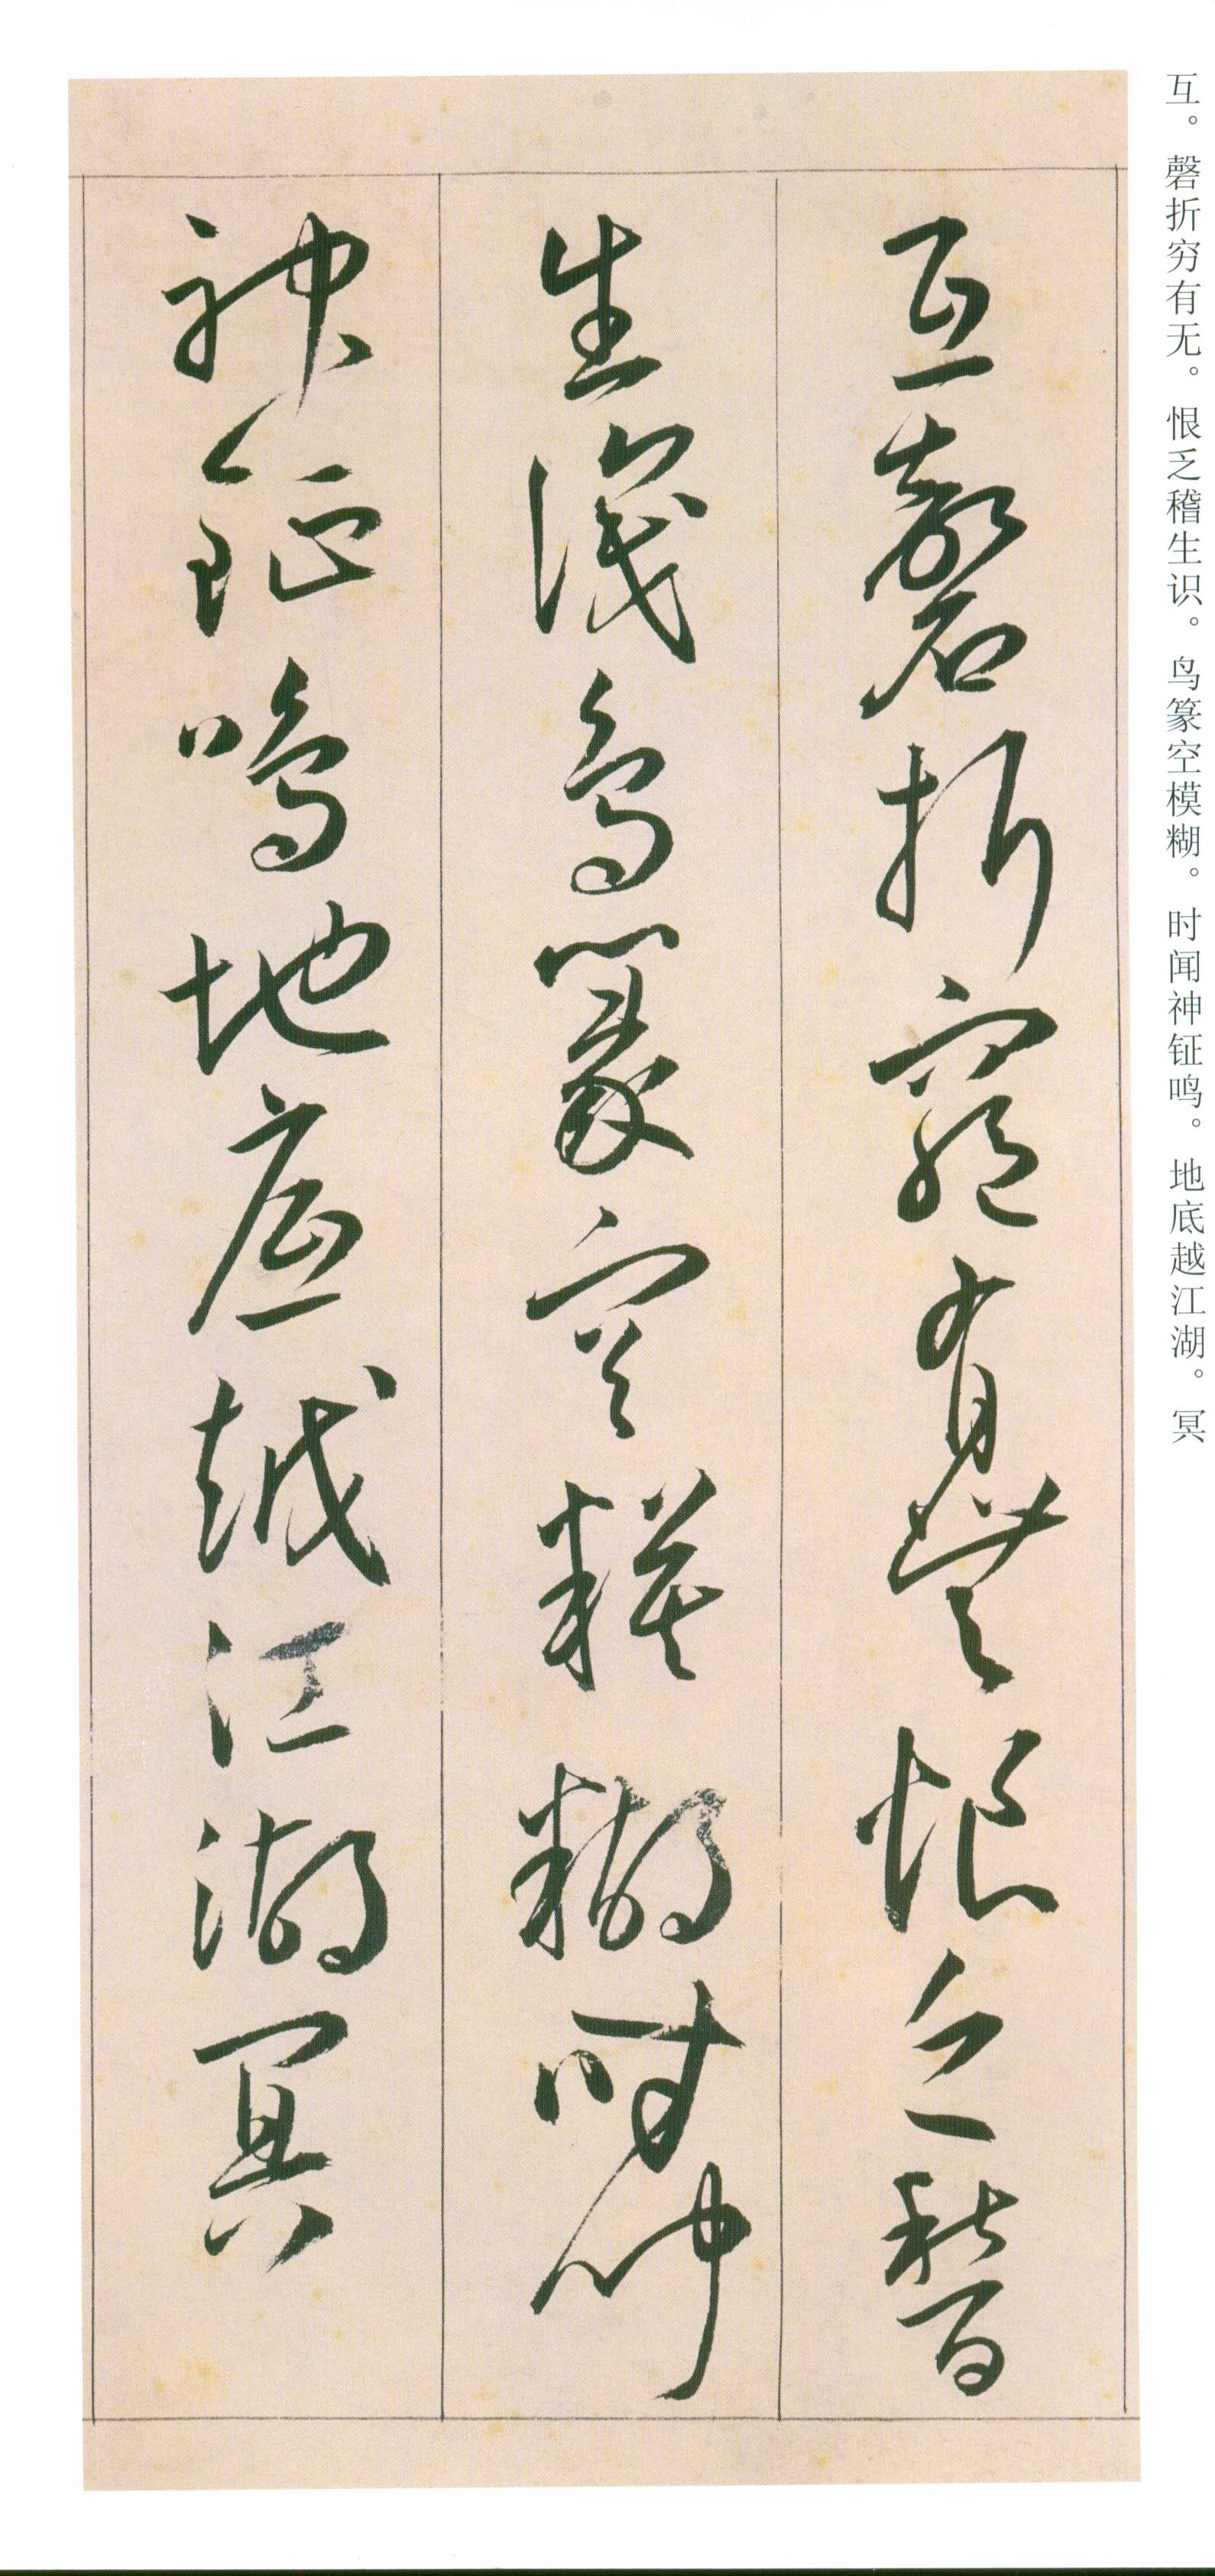 互。磬折穷有无。恨乏稽生识。鸟篆空模糊。时闻神钲鸣。地底越江湖。冥
互磬折窮有無恨乏稽
生識鳥篆空模糊时聞
神鉦鳴地底越江湖冥